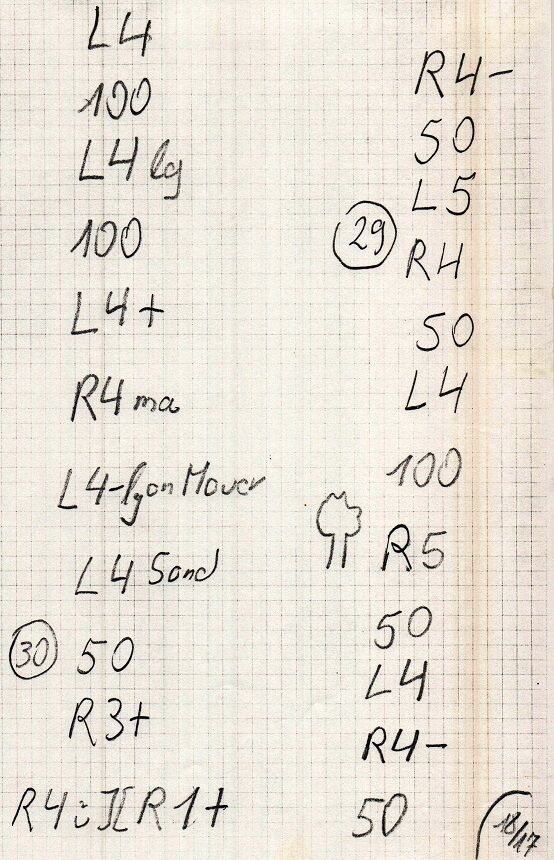 L4
100
L4 lg
100
L4+
R4 ma
L4- lg on Mauer
L4 Sand
30 50
R3+
R4 ü R1+
R4-
50
L5
29
R4
50
L4
100
R5
50
L4
R4-
50
18/17